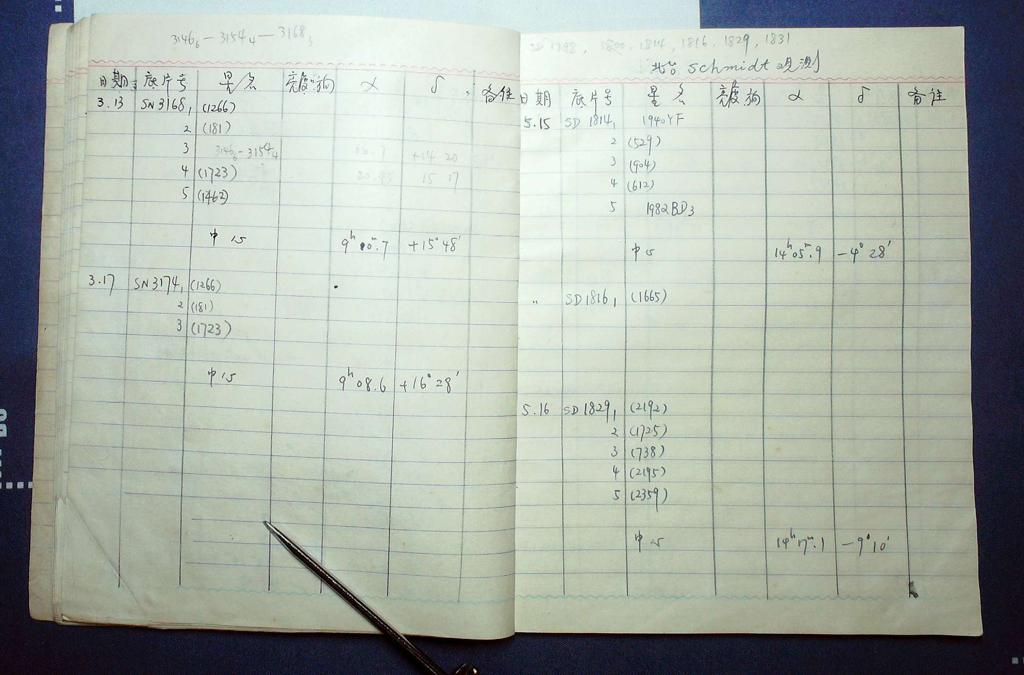 3146₆ — 3154₄ — 3168₃
日期 底片号 星名 亮度 α δ 备注
3.13 SN3168₁ (1266)
2 (181)
3 3146₆-3154₄ +14 20
4 (1723) 15 17
5 (1462)
中心 9ʰ10ᵐ.7 +15°48′
3.17 SN3174₁ (1266)
2 (181)
3 (1723)
中心 9ʰ08.6 +16°28′
1800, 1814, 1816, 1829, 1831
北台 Schmidt 观测
日期 底片号 星名 亮度 α δ 备注
5.15 SD 1814₁ 1940YF
2 (529)
3 (904)
4 (612)
5 1982BD₃
中心 14ʰ05ᵐ.9 -4°28′
" SD1816₁ (1665)
5.16 SD1829₁ (2192)
2 (1725)
3 (738)
4 (2195)
5 (2359)
中心 14ʰ17ᵐ.1 -9°10′